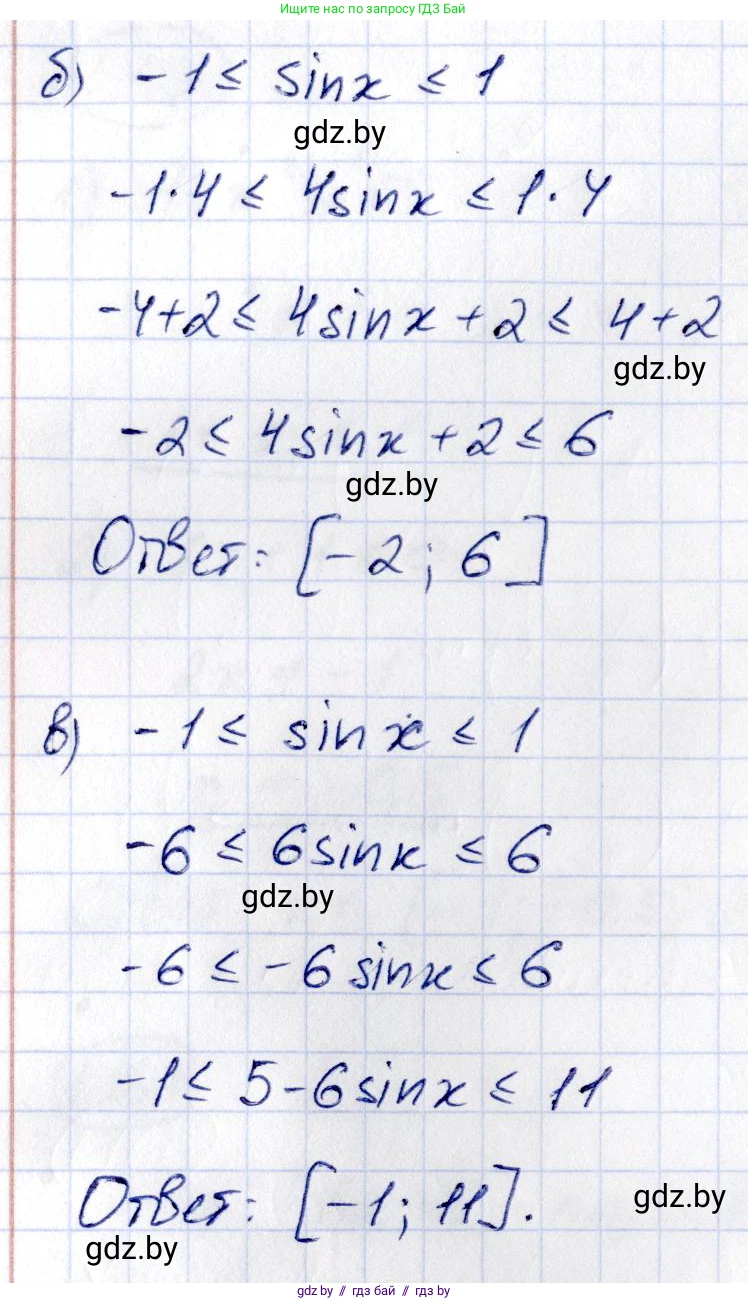 Ищите нас по запросу ГДЗ Бай
б) -1 ≤ sinx ≤ 1
gdz.by
-1·4 ≤ 4sinx ≤ 1·4
-4+2 ≤ 4sinx + 2 ≤ 4+2
gdz.by
-2 ≤ 4sinx + 2 ≤ 6
gdz.by
Ответ: [-2; 6]
в) -1 ≤ sinx ≤ 1
-6 ≤ 6sinx ≤ 6
gdz.by
-6 ≤ -6sinx ≤ 6
-1 ≤ 5-6sinx ≤ 11
Ответ: [-1; 11].
gdz.by
gdz.by
gdz.by // гдз бай // гдз by